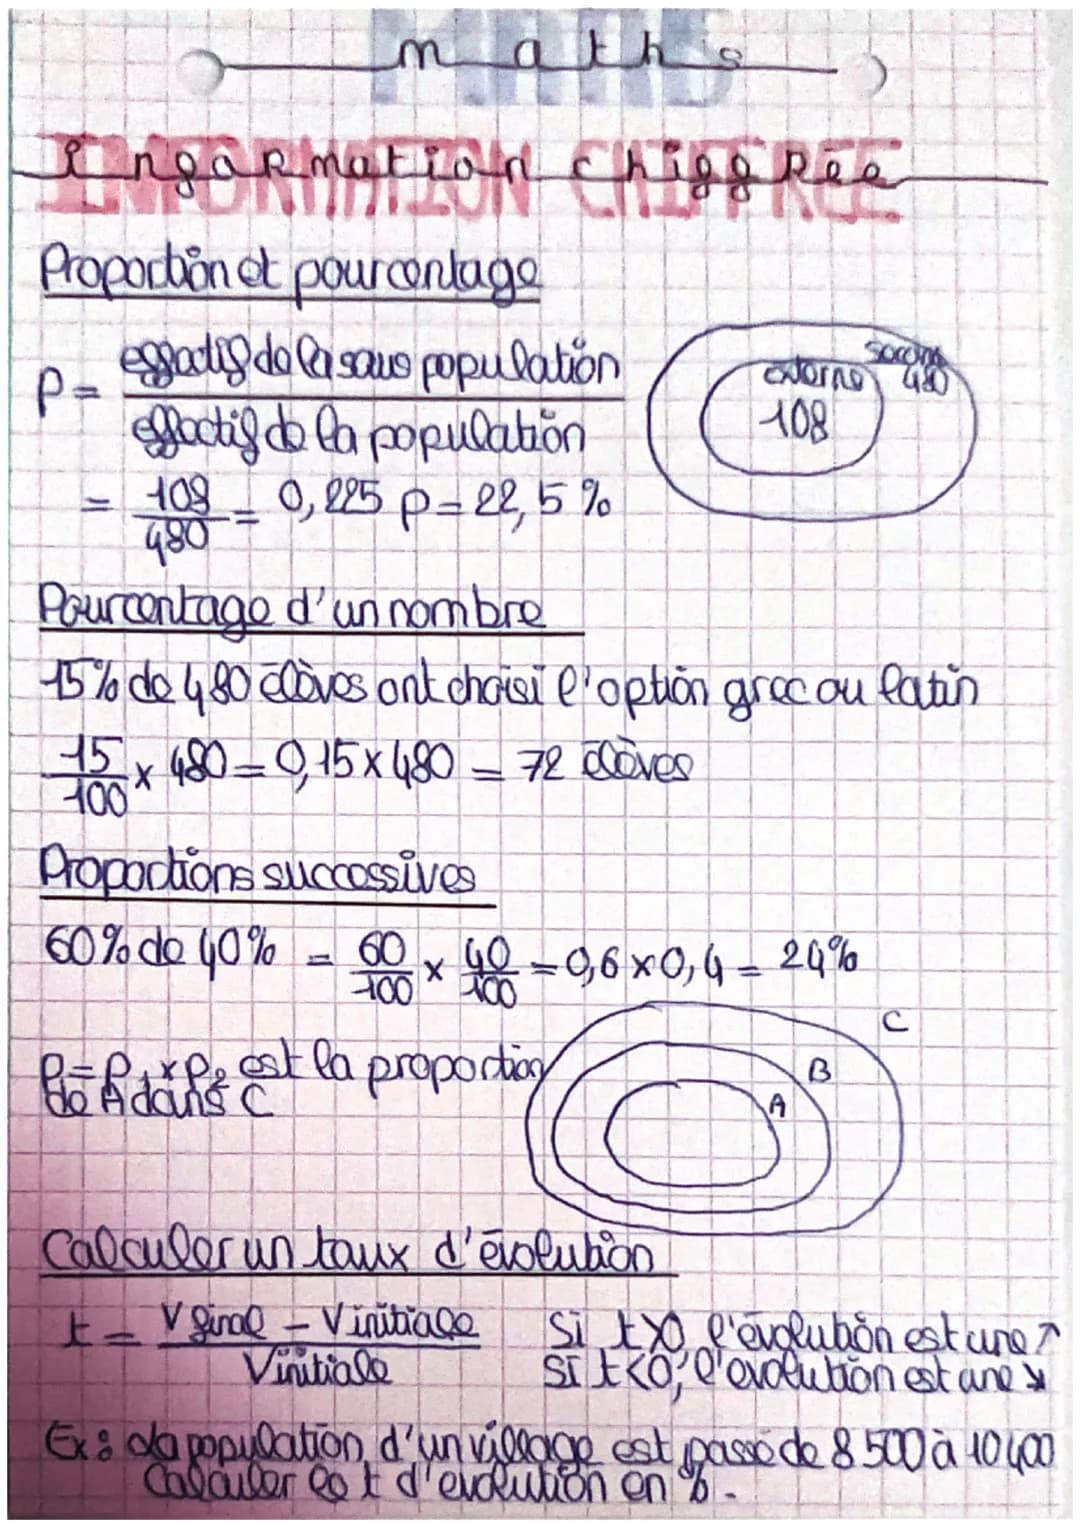 maths
MATHS
Information chiffrée
INFORMATION CHIFFRÉE
Proportion et pourcentage
P = effectif de la sous population / effectif de la population
externe
108
480
= 108/480 = 0,225 p = 22,5 %
Pourcentage d'un nombre
15% de 480 élèves ont choisi l'option grec ou latin
15/100 x 480 = 0,15 x 480 = 72 élèves
Proportions successives
60% de 40% = 60/100 x 40/100 = 0,6 x 0,4 = 24%
P = P1 x P2 est la proportion
de A dans C
C
B
A
Calculer un taux d'évolution
t = V final - V initiale / V initiale
Si t>0, l'évolution est une ↗
Si t<0, l'évolution est une ↘
Ex : la population d'un village est passé de 8 500 à 10 400
Calculer le t d'évolution en %.